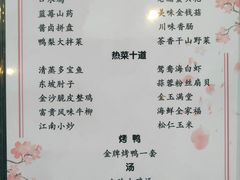 蓝莓山药 美味金钱菇
酱卤拼盘 川味香肠
鸭梨大拌菜 茶香干山野菜
热菜十道
清蒸多宝鱼 鸳鸯海白虾
东坡肘子 蒜蓉粉丝扇贝
金沙脆皮整鸡 金玉满堂
富贵风味牛柳 海鲜全家福
江南小炒 松仁玉米
烤鸭
金牌烤鸭一套
汤